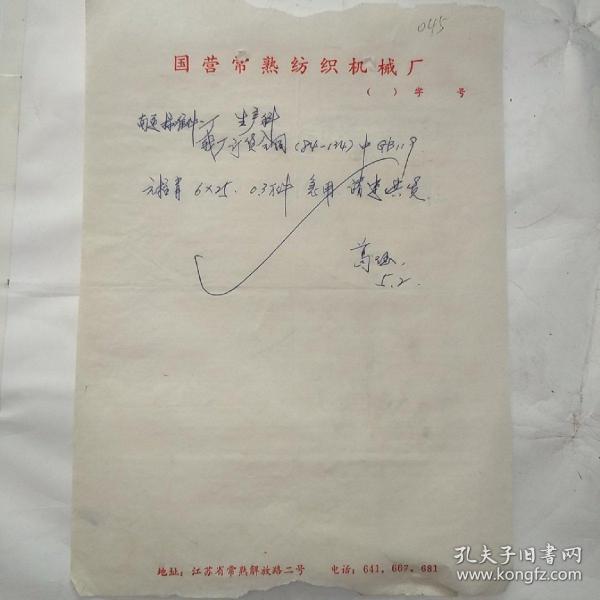 045
国营常熟纺织机械厂
( ) 字 号
南通标准件二厂 生产科
我厂订货合同(84-124)中 GB119
6×25. 0.3万件 急用 请速供货
葛
5.2.
地址:江苏省常熟解放路二号 电话:641,667,681
孔夫子旧书网
www.kongfz.com